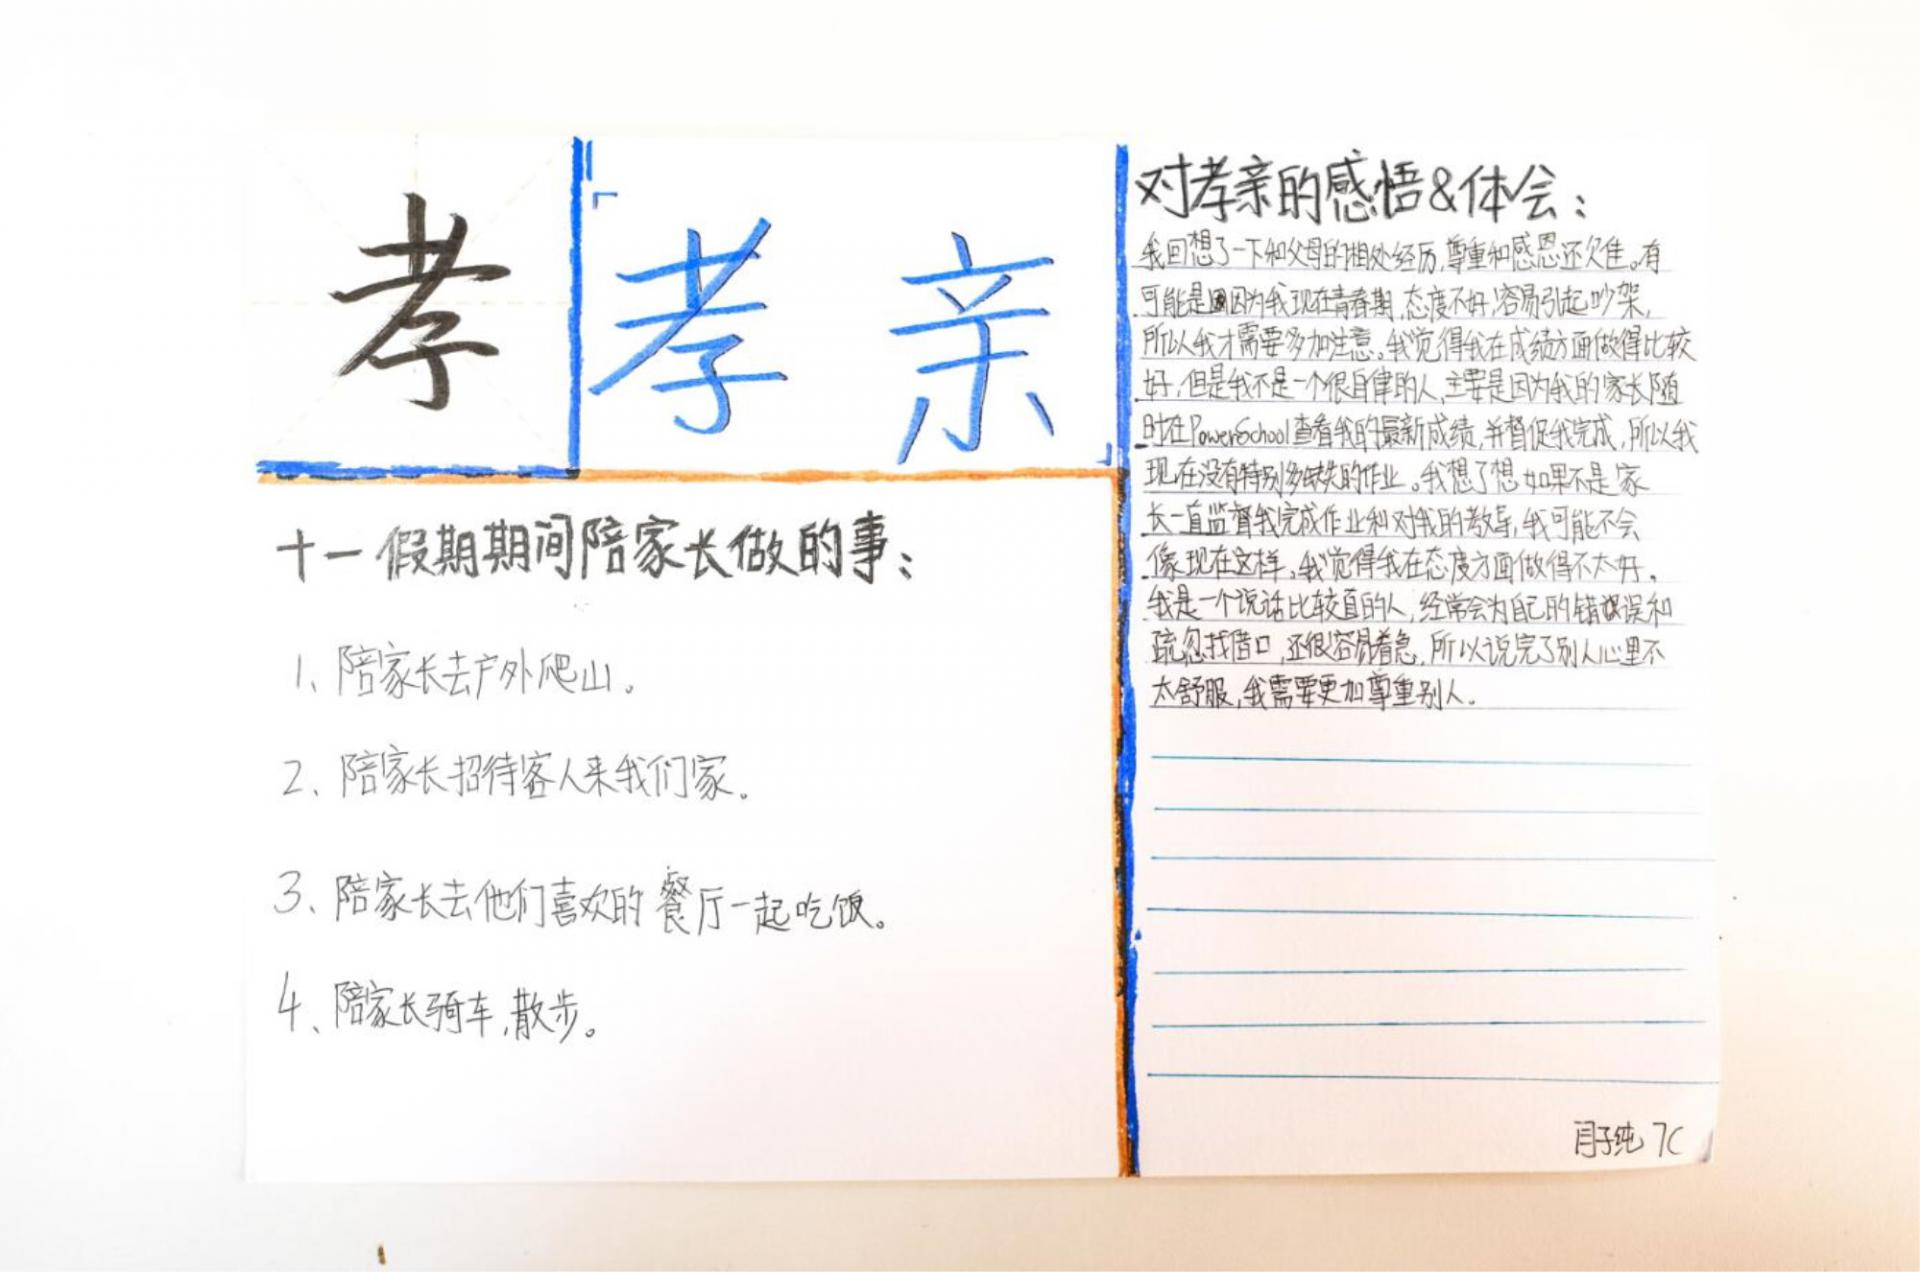 孝
孝 亲
十一假期期间陪家长做的事：
1、陪家长去户外爬山。
2、陪家长招待客人来我们家。
3、陪家长去他们喜欢的餐厅一起吃饭。
4、陪家长骑车,散步。
对孝亲的感悟&体会：
我回想了一下和父母的相处经历,尊重和感恩还欠佳。有
可能是因为我现在青春期,态度不好,容易引起吵架,
所以我才需要多加注意。我觉得我在成绩方面做得比较
好,但是我不是一个很自律的人,主要是因为我的家长随
时在PowerSchool查看我的最新成绩,并督促我完成,所以我
现在没有特别多缺失的作业。我想了想如果不是家
长一直监督我完成作业和对我的教育,我可能不会
像现在这样。我觉得我在态度方面做得不太好。
我是一个说话比较直的人,经常会为自己的错误和
疏忽找借口,还很容易着急,所以说完了别人心里不
太舒服,我需要更加尊重别人。
闫子纯 7C